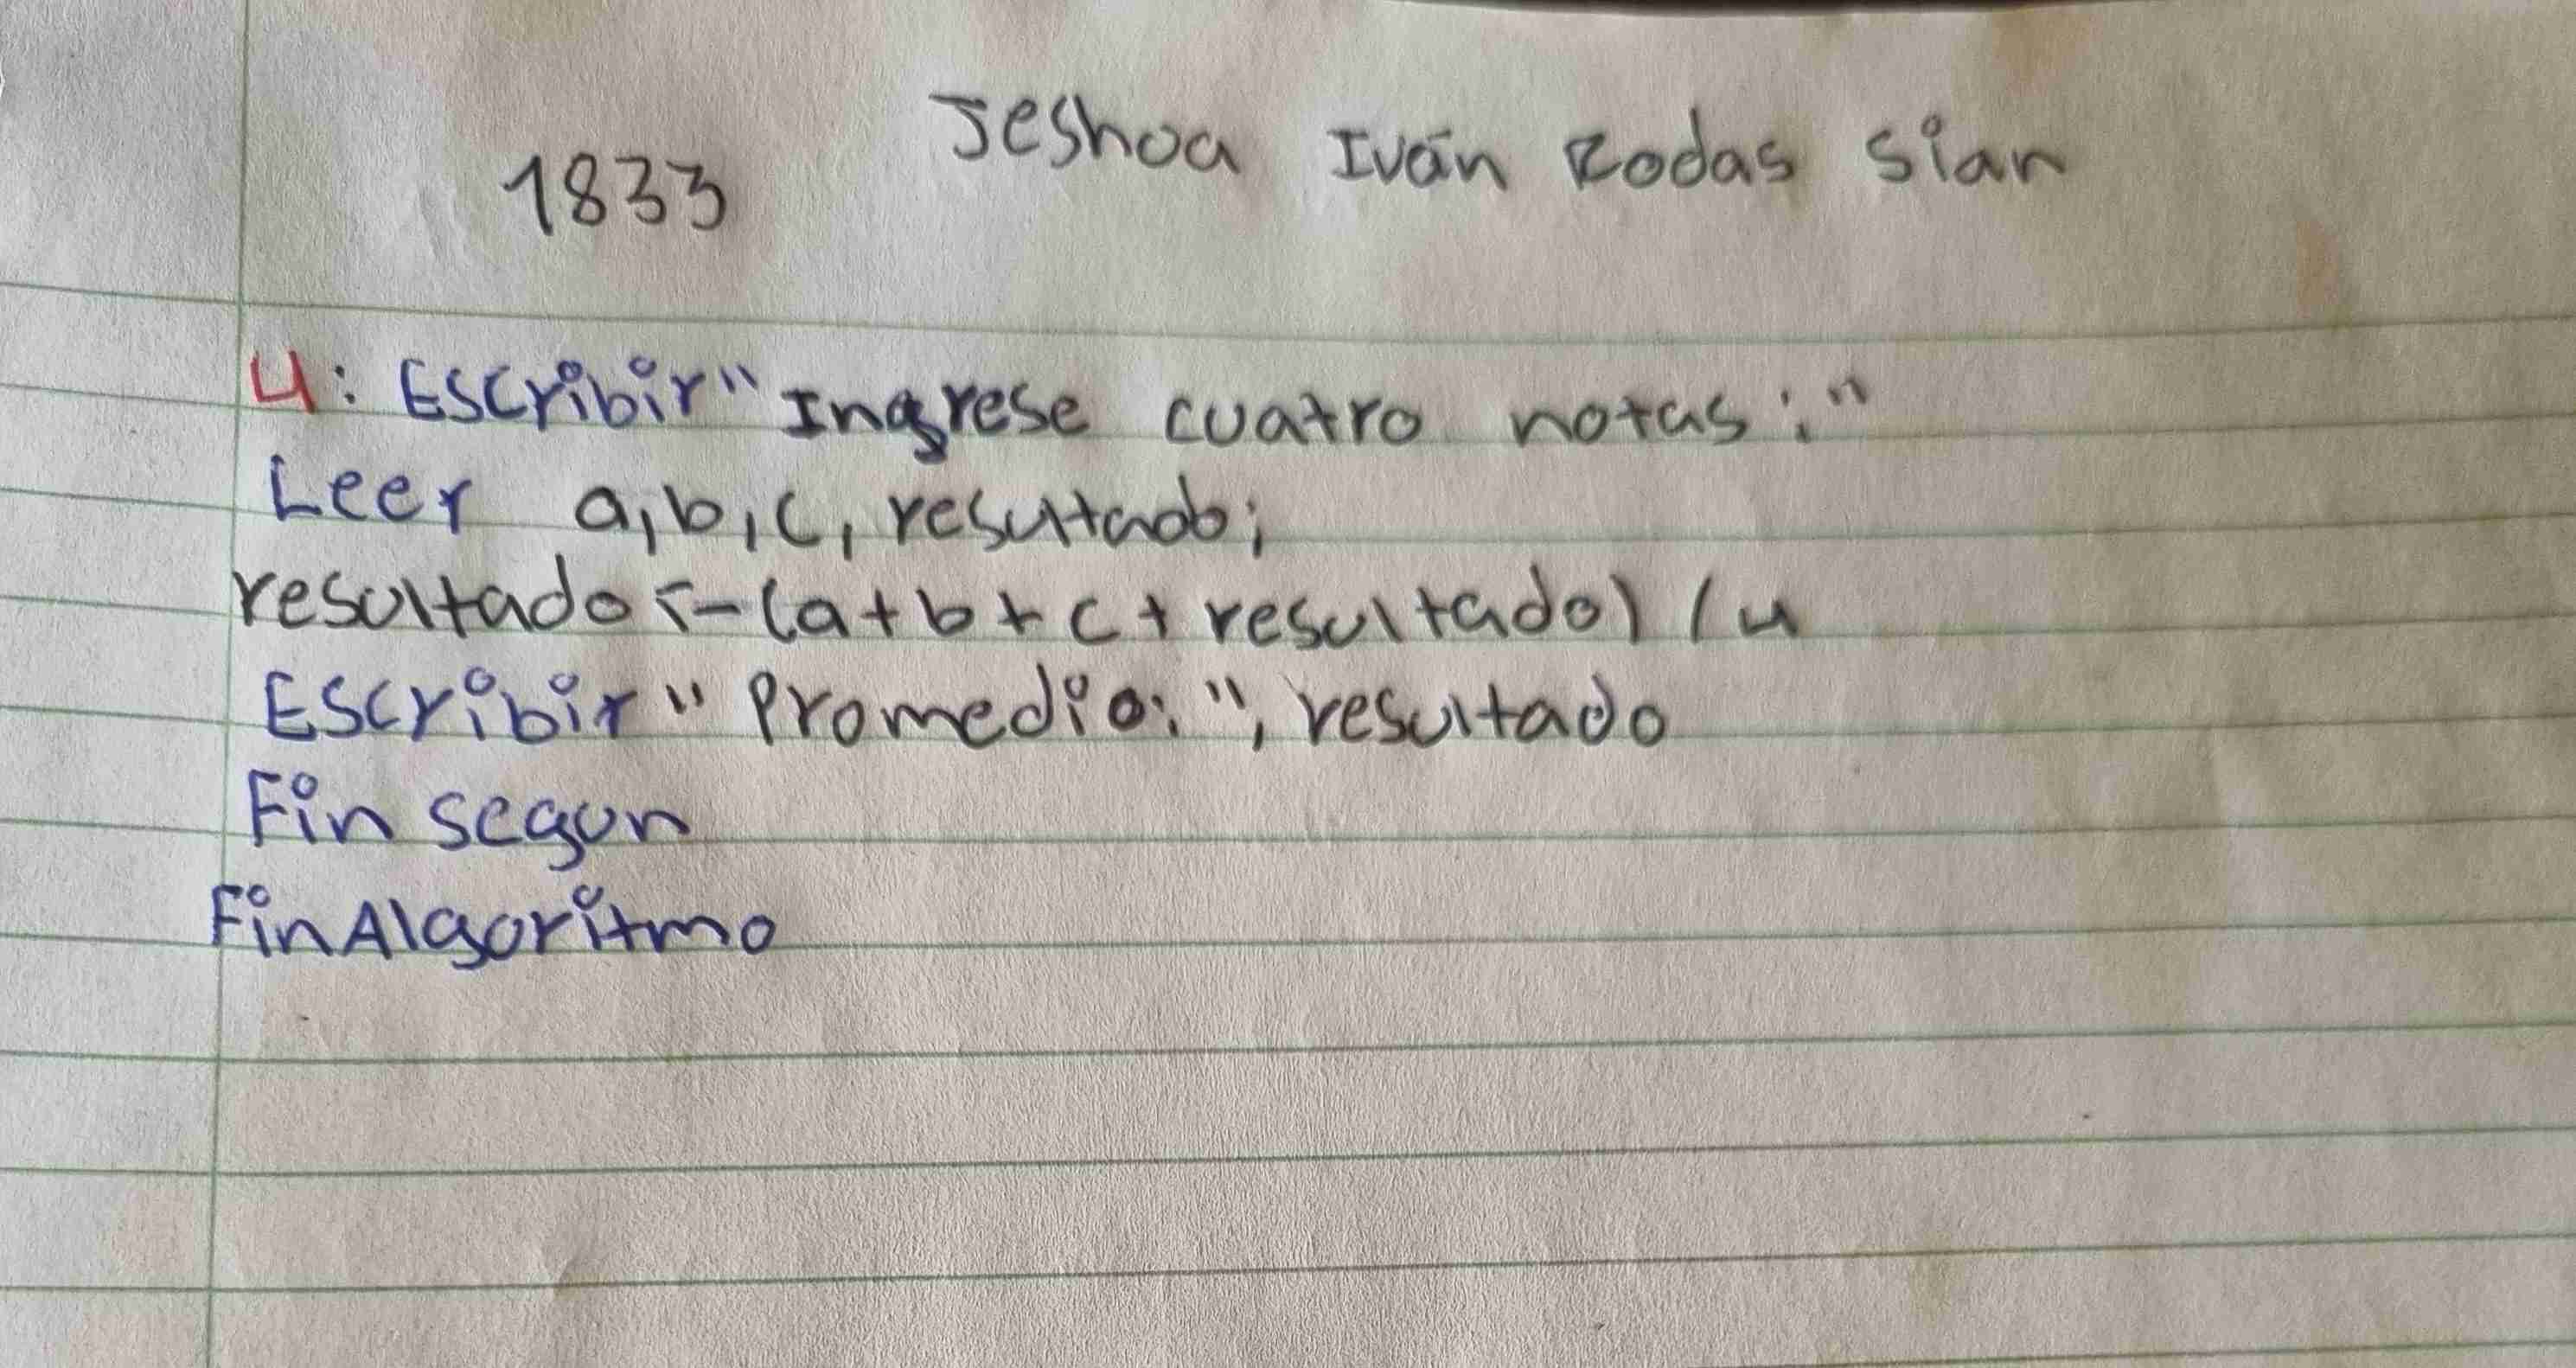 Jeshoa Iván Rodas Sian
1833
4: Escribir "Ingrese cuatro notas:"
Leer a,b,c, resultado;
resultado <- (a+b+c+resultado) /4
Escribir "Promedio:", resultado
Fin segun
FinAlgoritmo